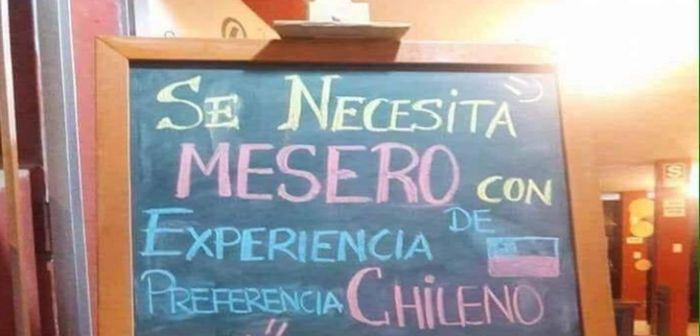 SE NECESITA
MESERO CON
EXPERIENCIA DE
PREFERENCIA CHILENO